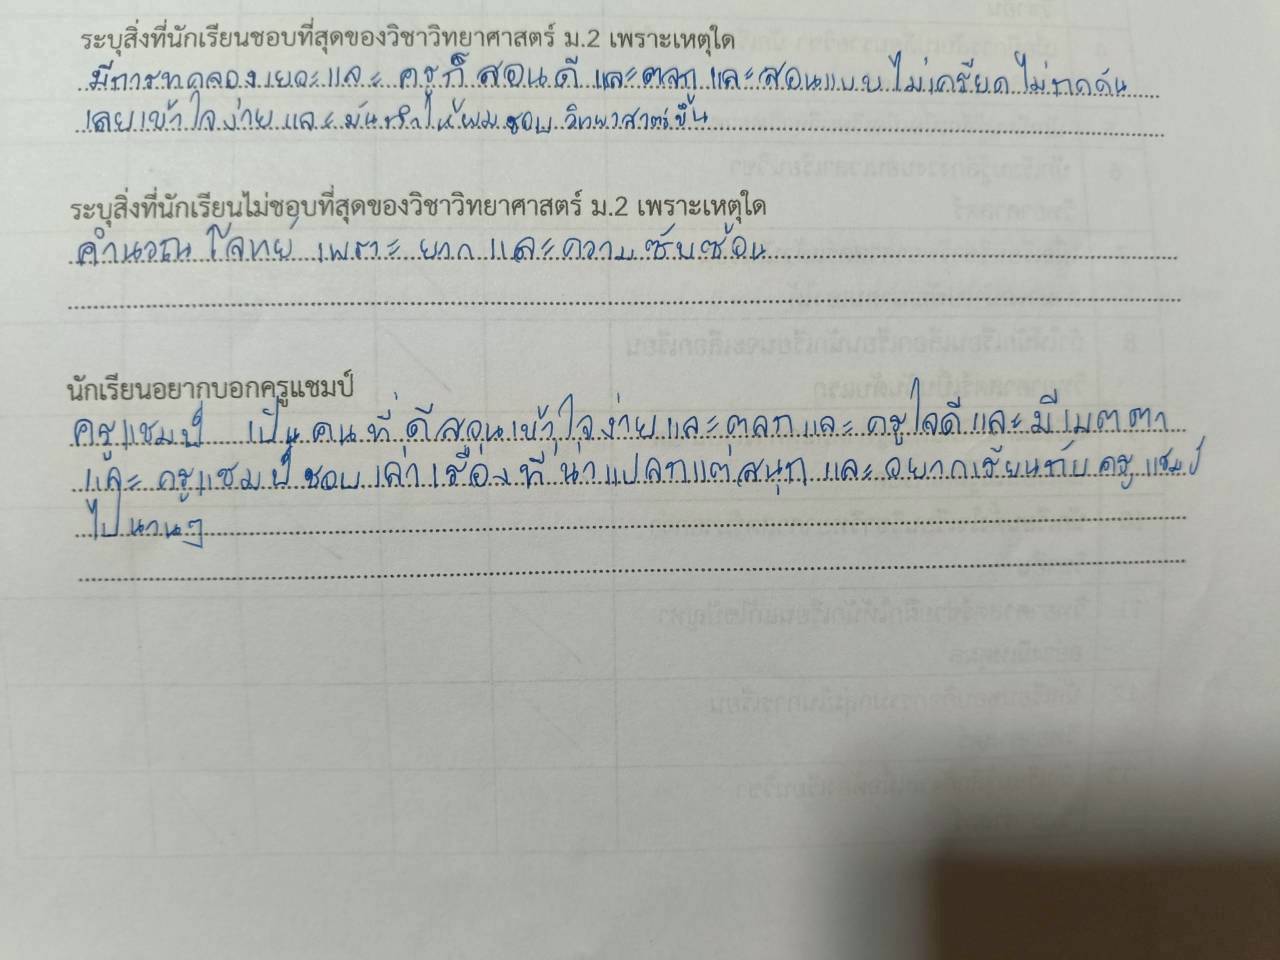 ระบุสิ่งที่นักเรียนชอบที่สุดของวิชาวิทยาศาสตร์ ม.2 เพราะเหตุใด
มีการทดลองเยอะและ ครูก็ สอนดี และตลก และสอนแบบไม่เครียด ไม่กดดัน
เลยเข้าใจง่าย และมันทำให้ผม ชอบ วิทยาสาตร์ขึ้น
ระบุสิ่งที่นักเรียนไม่ชอบที่สุดของวิชาวิทยาศาสตร์ ม.2 เพราะเหตุใด
คำนวณ โจทย์ เพราะ ยาก และความซับซ้อน
นักเรียนอยากบอกครูแชมป์
ครูแชมป์ เป็นคนที่ ดีสอนเข้าใจง่ายและตลกและ ครูใจดีและมีเมตตา
และ ครูแชมป์ชอบเล่าเรื่องที่น่าแปลกแต่สนุกและอยากเรียนกับครูแชมป์
ไปนานๆ